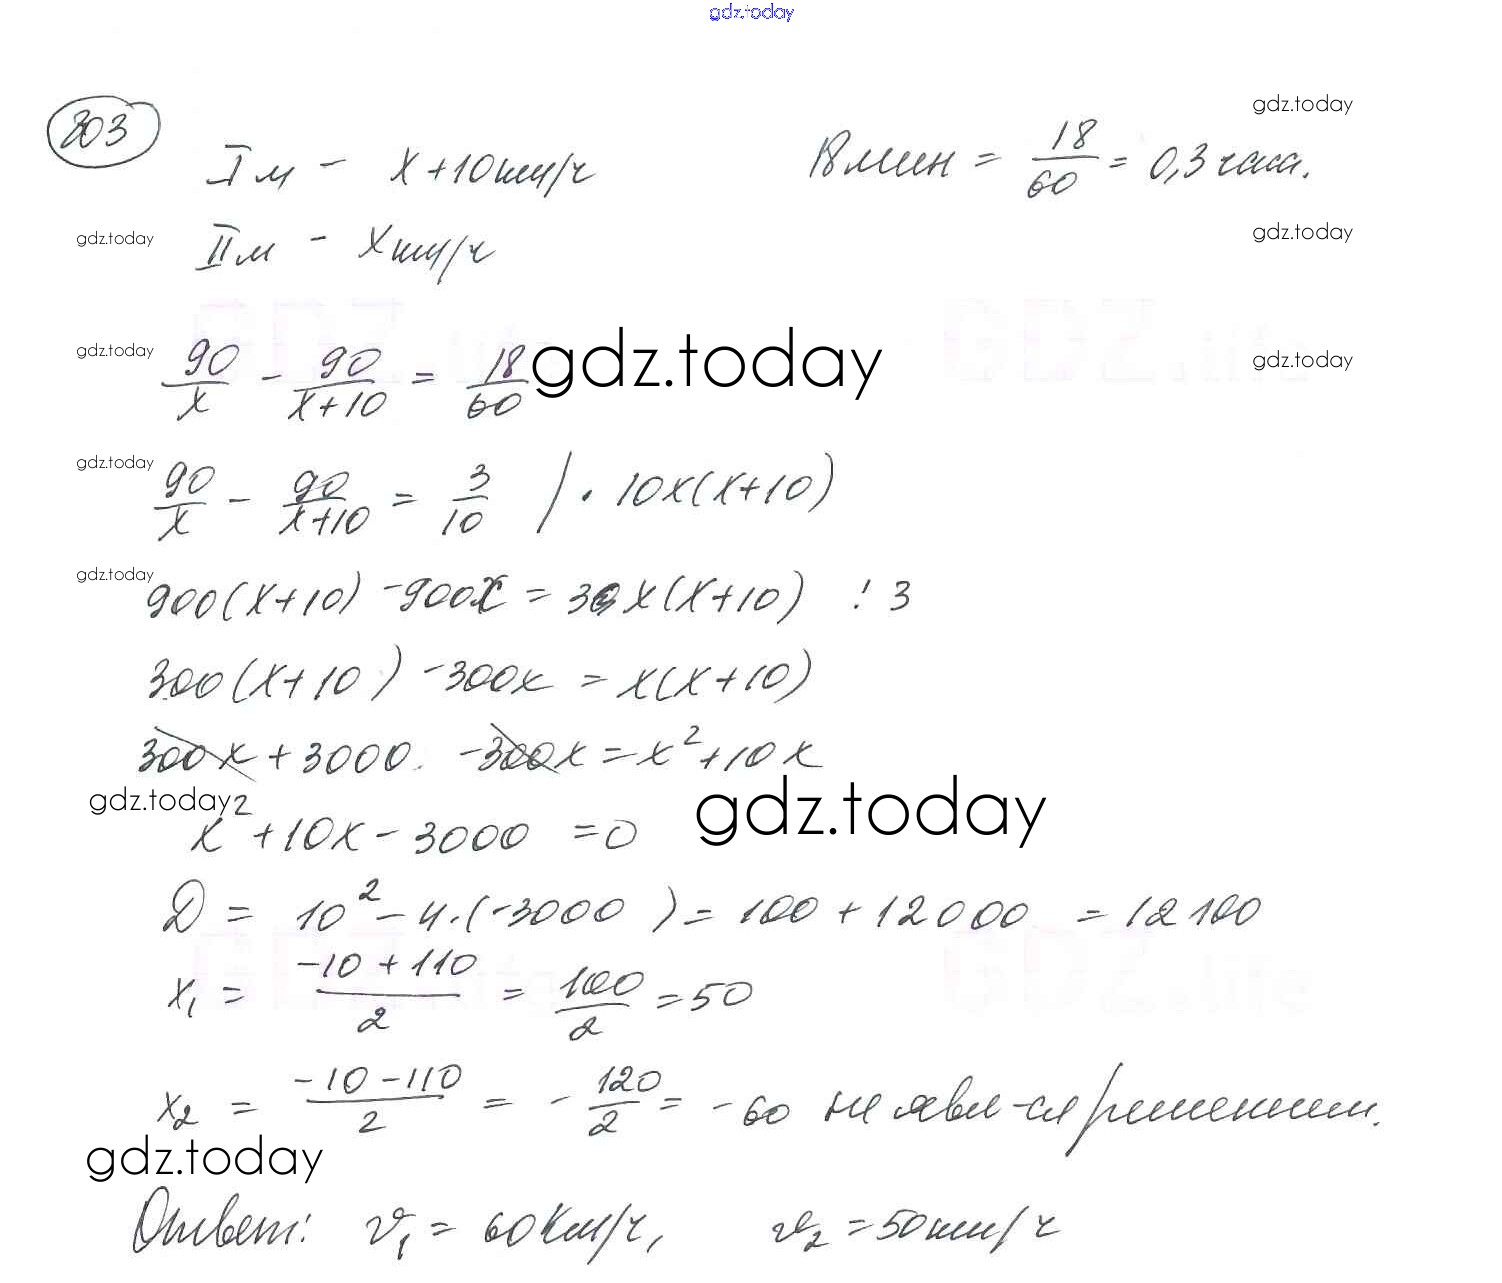 gdz.today
803
gdz.today
I м – x + 10 км/ч 18 мин = 18/60 = 0,3 часа.
gdz.today II м – x км/ч gdz.today
gdz.today 90/x – 90/(x+10) = 18/60 gdz.today gdz.today
gdz.today 90/x – 90/(x+10) = 3/10 | · 10x(x+10)
gdz.today
900(x+10) – 900x = 3x(x+10) : 3
300(x+10) – 300x = x(x+10)
300x + 3000 – 300x = x² + 10x
gdz.today gdz.today
x² + 10x – 3000 = 0
D = 10² – 4·(–3000) = 100 + 12000 = 12100
x₁ = (–10 + 110)/2 = 100/2 = 50
x₂ = (–10 – 110)/2 = –120/2 = –60 не явл-ся решением.
gdz.today
Ответ: v₁ = 60 км/ч, v₂ = 50 км/ч